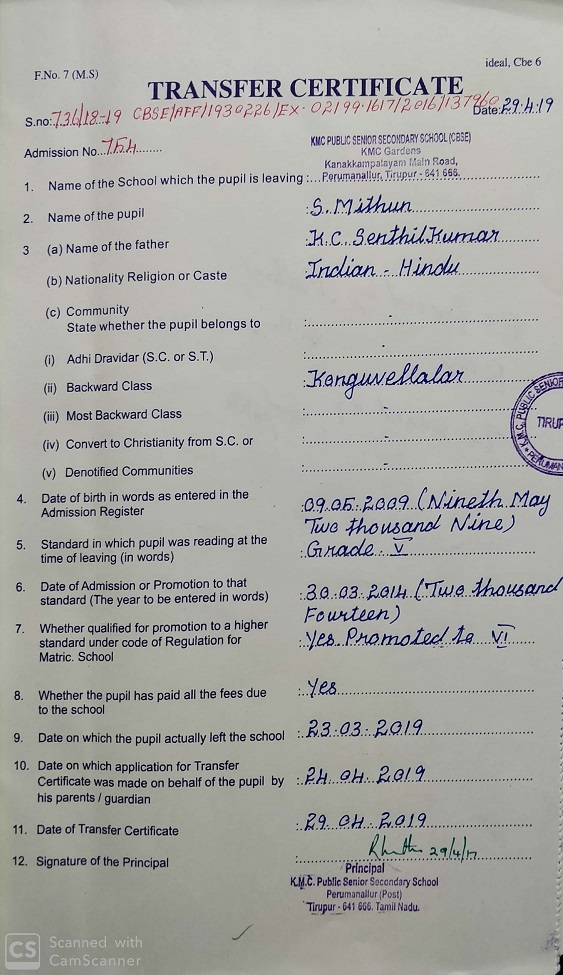 ideal, Cbe 6
F.No. 7 (M.S)
TRANSFER CERTIFICATE
S.no: 736/18-19 CBSE/AFF/1930226/EX-02199-1617/2016/137960 Date: 29.4.19
Admission No. 754
KMC PUBLIC SENIOR SECONDARY SCHOOL (CBSE)
KMC Gardens
Kanakkampalayam Main Road,
Perumanallur, Tirupur - 641 666.
1. Name of the School which the pupil is leaving :
2. Name of the pupil : S. Mithun
3 (a) Name of the father : K.C. Senthil Kumar
(b) Nationality Religion or Caste : Indian - Hindu
(c) Community
State whether the pupil belongs to : -
(i) Adhi Dravidar (S.C. or S.T.) : -
(ii) Backward Class : Konguvellalar
(iii) Most Backward Class : -
(iv) Convert to Christianity from S.C. or : -
(v) Denotified Communities : -
K.M.C. PUBLIC SENIOR
TIRUP
PERUMAN
4. Date of birth in words as entered in the : 09.05.2009 (Nineth May
Admission Register Two thousand Nine)
5. Standard in which pupil was reading at the : Grade. V
time of leaving (in words)
6. Date of Admission or Promotion to that : 30.03.2014 (Two thousand
standard (The year to be entered in words) Fourteen)
7. Whether qualified for promotion to a higher : Yes. Promoted to VI
standard under code of Regulation for
Matric. School
8. Whether the pupil has paid all the fees due : Yes
to the school
9. Date on which the pupil actually left the school : 23.03.2019
10. Date on which application for Transfer : 24.04.2019
Certificate was made on behalf of the pupil by
his parents / guardian
11. Date of Transfer Certificate : 29.04.2019
12. Signature of the Principal : 29/4/19
Principal
K.M.C. Public Senior Secondary School
Perumanallur (Post)
Tirupur - 641 666. Tamil Nadu.
CS Scanned with
CamScanner